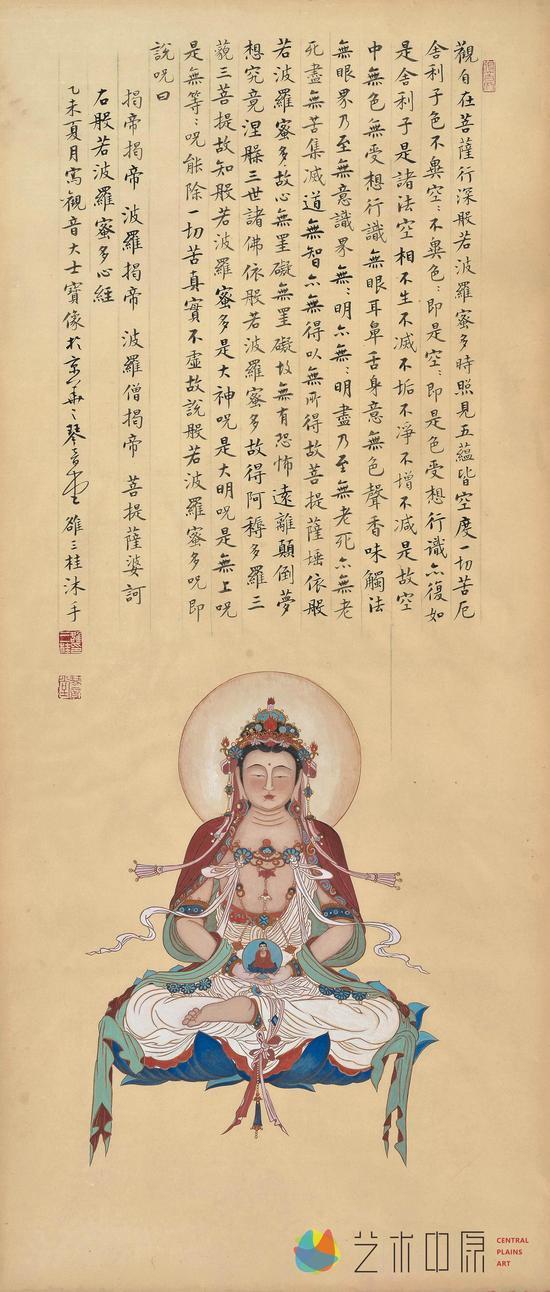 觀自在菩薩行深般若波羅蜜多時照見五蘊皆空度一切苦厄
舍利子色不異空〻不異色〻即是空〻即是色受想行識亦復如
是舍利子是諸法空相不生不滅不垢不淨不增不減是故空
中無色無受想行識無眼耳鼻舌身意無色聲香味觸法
無眼界乃至無意識界無〻明亦無〻明盡乃至無老死亦無老
死盡無苦集滅道無智亦無得以無所得故菩提薩埵依般
若波羅蜜多故心無罣礙無罣礙故無有恐怖遠離顛倒夢
想究竟涅槃三世諸佛依般若波羅蜜多故得阿耨多羅三
藐三菩提故知般若波羅蜜多是大神呪是大明呪是無上呪
是無等〻呪能除一切苦真實不虛故說般若波羅蜜多呪即
說呪曰
揭帝揭帝 波羅揭帝 波羅僧揭帝 菩提薩婆訶
右般若波羅蜜多心經
乙未夏月寫觀音大士寶像於京華之琴音堂 雒三桂沐手
艺术中原
CENTRAL
PLAINS
ART